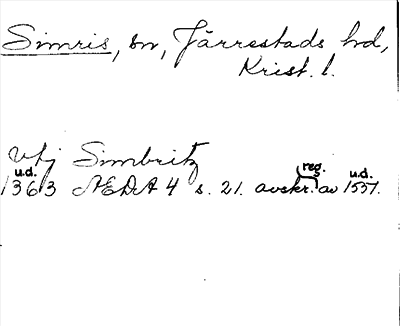 Simris, sn, Järrestads hd,
Krist. l.
vtj Simbritz
u.d. reg. u.d.
1363 ÆDA 4 s. 21. avskr. av 1551.